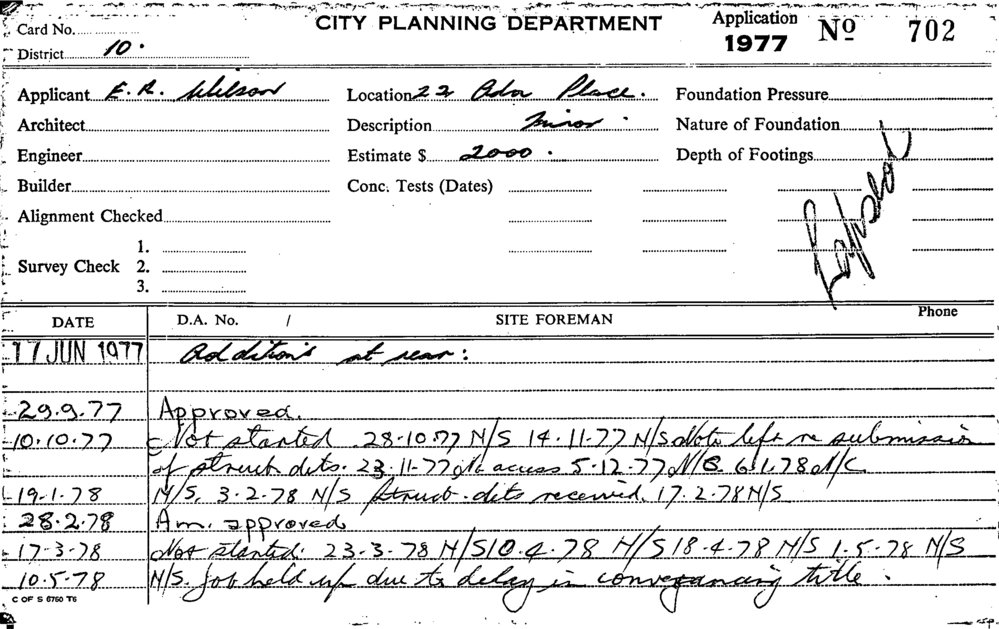 Card No.
CITY PLANNING DEPARTMENT
Application 1977 Nº 702
District 10.
Applicant E. R. Wilson Location 22 Ada Place. Foundation Pressure
Architect Description minor. Nature of Foundation
Engineer Estimate $ 2000. Depth of Footings
Builder Conc. Tests (Dates)
Lapsed
Alignment Checked
1.
Survey Check 2.
3.
DATE D.A. No. / SITE FOREMAN Phone
17 JUN 1977 Additions at rear:
29.9.77 Approved.
10.10.77 Not started 28-10-77 N/S 14-11-77 N/S Note left re submission
of struct dets. 23-11-77 No access 5-12-77 6.1.78 N/C
19-1-78 N/S. 3-2-78 N/S Struct. dets received. 17.2.78 N/S
28.2.78 Am. approved
17-3-78 Not started. 23-3-78 N/S 10.4.78 N/S 18-4-78 N/S 1-5-78 N/S
10.5.78 N/S. Job held up due to delay in conveyancing title.
C OF S 6750 T6